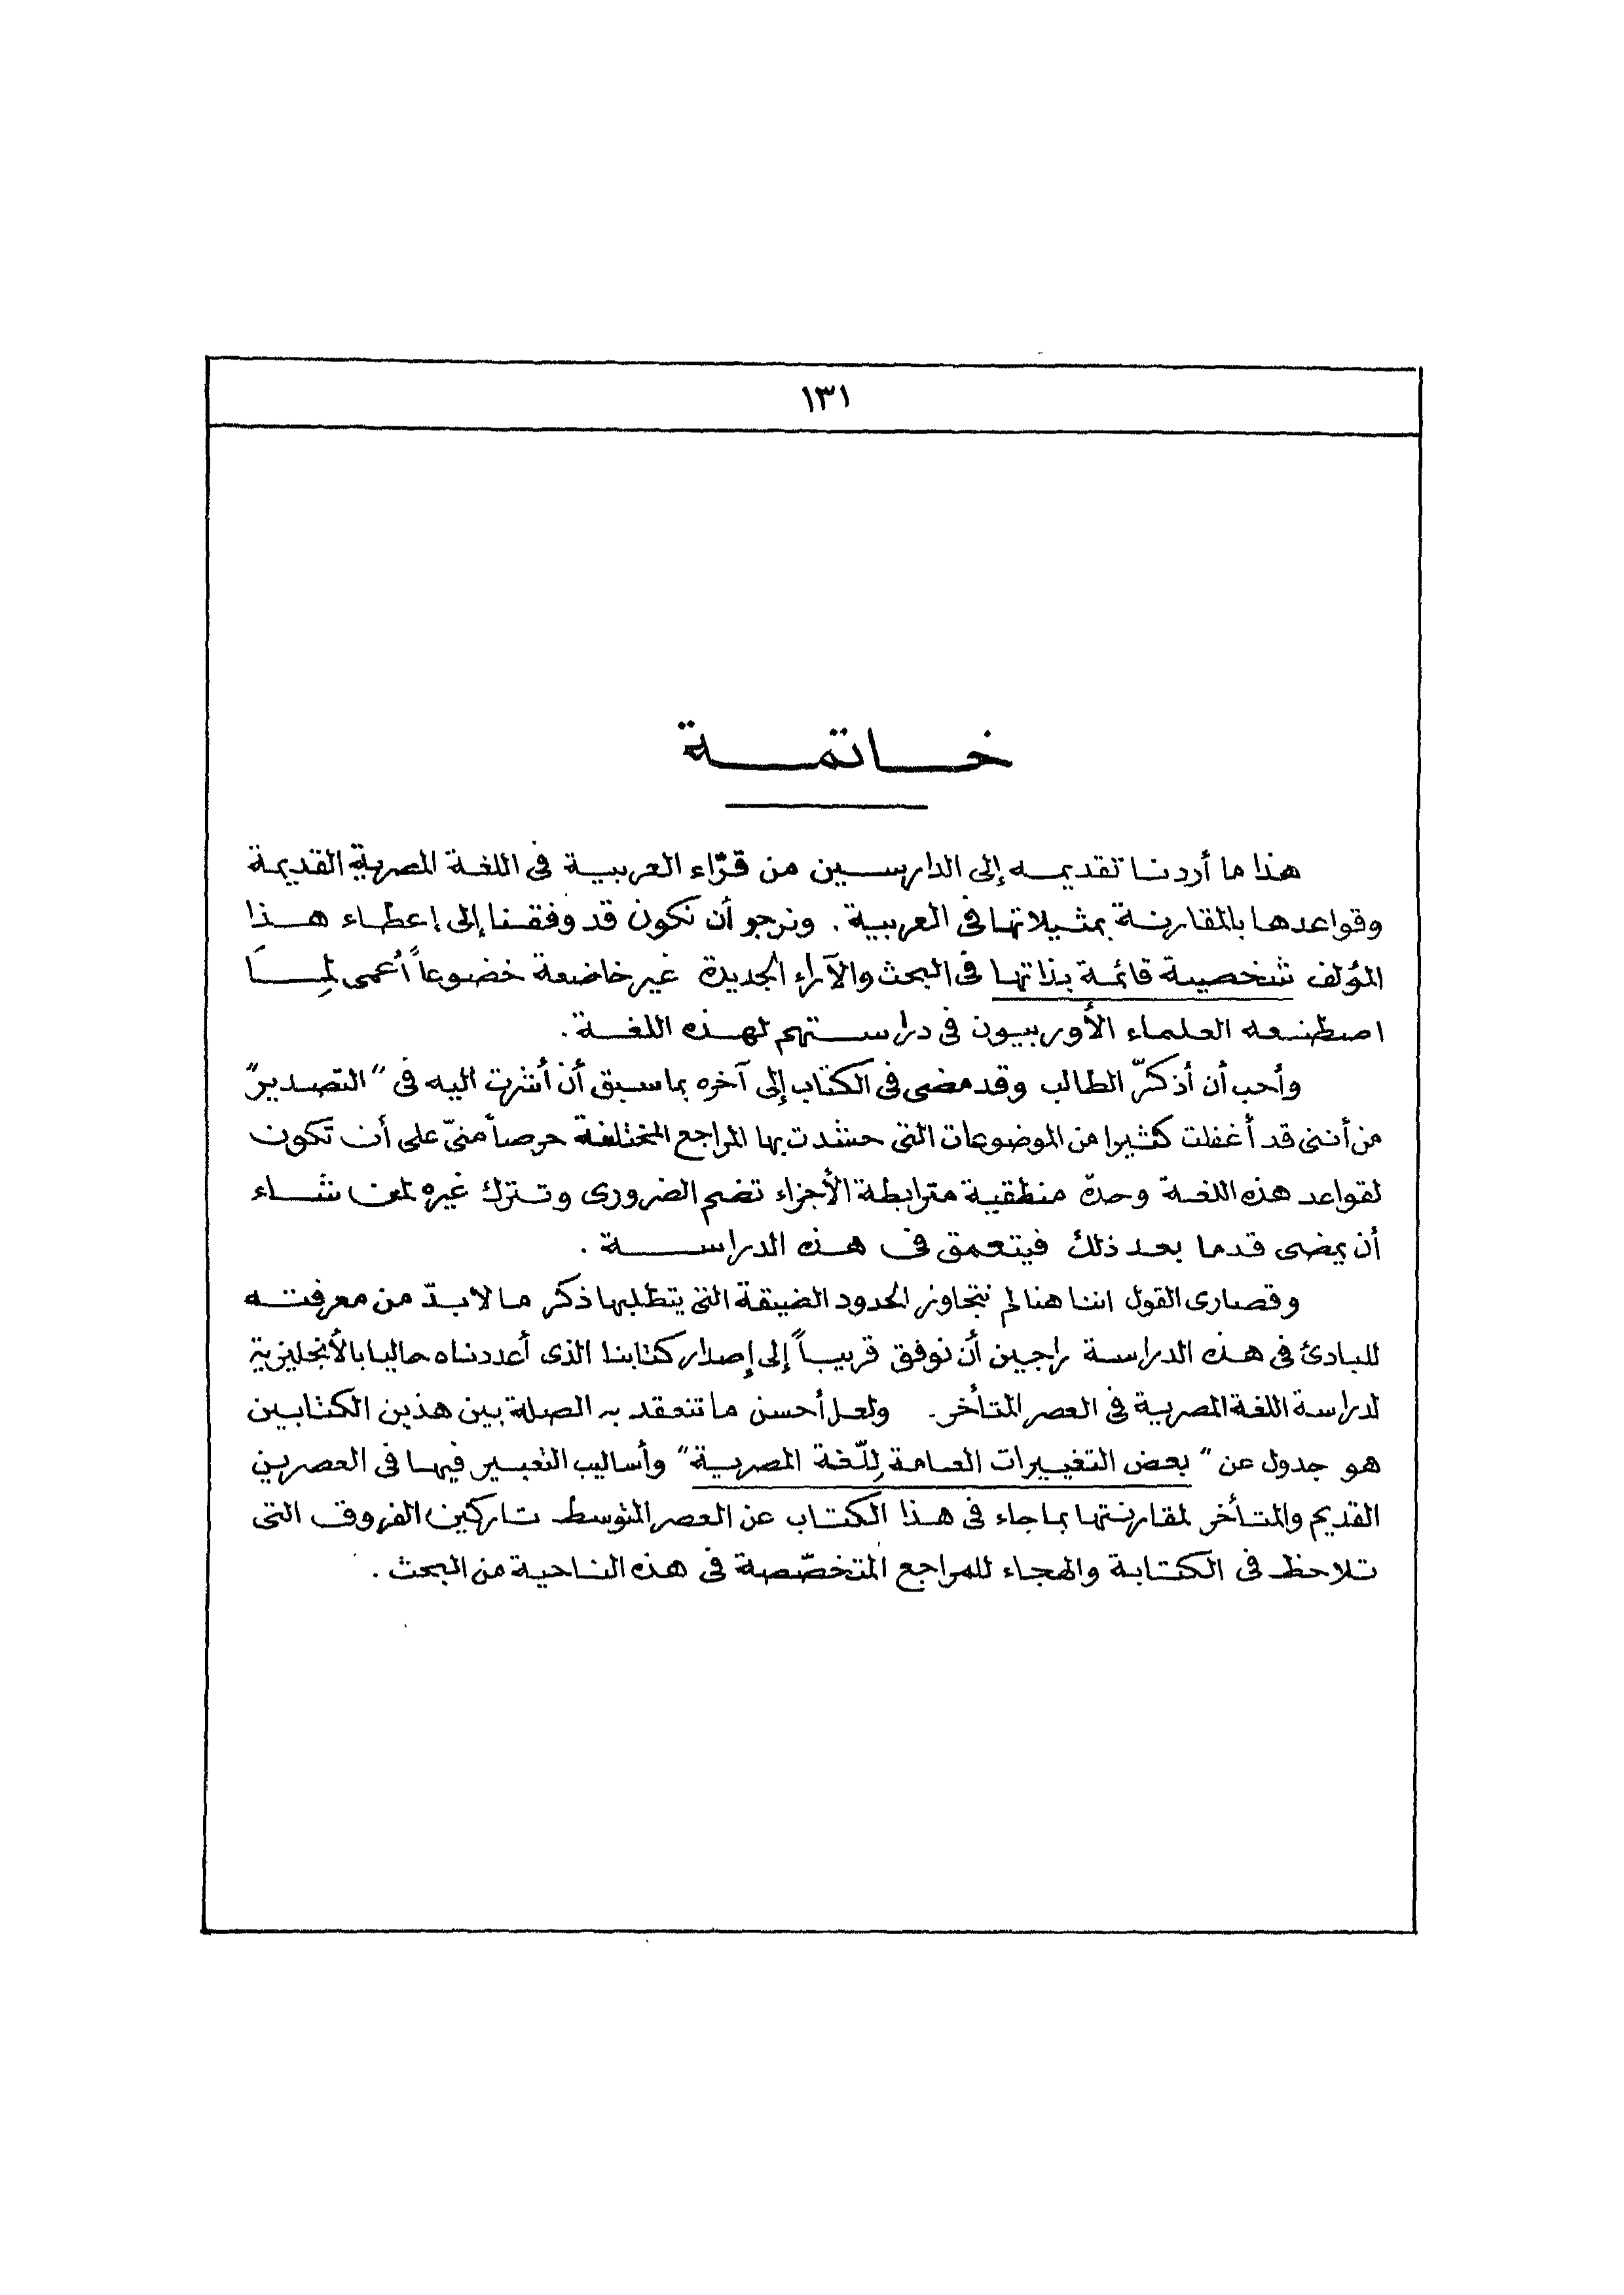 ١٣١
خاتمة
هذا ما أردنا تقديمه إلى الدارسين من قرّاء العربية فى اللغة المصرية القديمة
وقواعدها بالمقارنة بمثيلاتها فى العربية . ونرجو أن نكون قد وفقنا إلى إعطاء هذا
المؤلف شخصية قائمة بذاتها فى البحث والآراء الجديدة غير خاضعة خضوعاً أعمى لِمَا
اصطنعه العلماء الأوربيون فى دراستهم لهذه اللغة .
وأحب أن أذكّر الطالب وقد مضى فى الكتاب إلى آخره بما سبق أن أشرت اليه فى "التصدير"
من أننى قد أغفلت كثيرا من الموضوعات التى حشدت بها المراجع المختلفة حرصاً منىّ على أن تكون
لقواعد هذه اللغة وحدة منطقية مترابطة الأجزاء تضم الضرورى وتترك غيره لمن شاء
أن يمضى قدما بعد ذلك فيتعمق فى هذه الدراسة .
وقصارى القول اننا هنا لم نتجاوز الحدود الضيقة التى يتطلبها ذكر ما لابدّ من معرفته
للبادئ فى هذه الدراسة راجين أن نوفق قريباً إلى إصدار كتابنا الذى أعددناه حاليا بالأنجليزية
لدراسة اللغة المصرية فى العصر المتأخر . ولعل أحسن ما تنعقد به الصلة بين هذين الكتابين
هو جدول عن " بعض التغييرات العامة لِلّغة المصرية " وأساليب التعبير فيها فى العصرين
القديم والمتأخر لمقارنتها بما جاء فى هذا الكتاب عن العصر المتوسط تاركين الفروق التى
تلاحظ فى الكتابة والهجاء للمراجع المتخصّصة فى هذه الناحية من البحث .